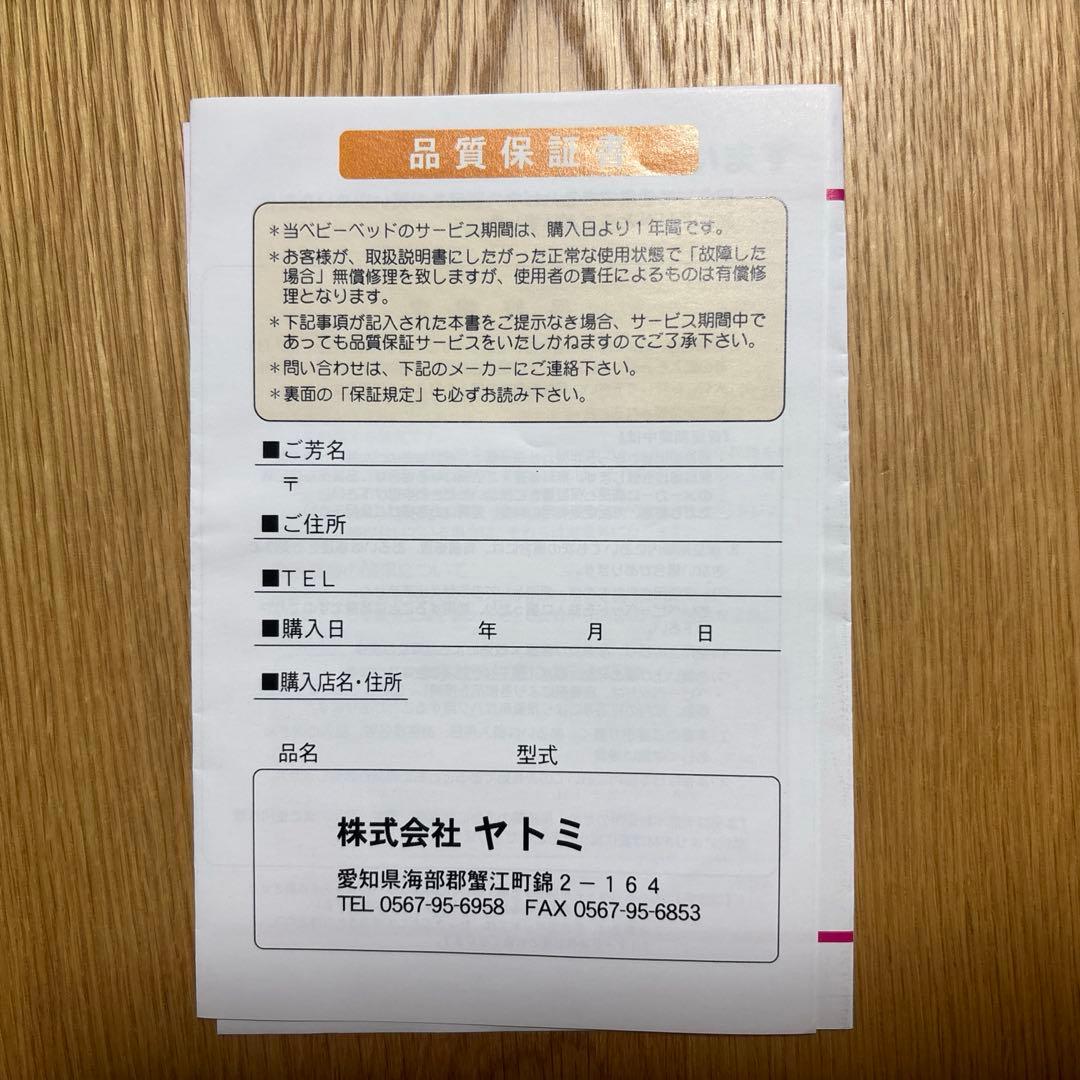 品質保証書
＊当ベビーベッドのサービス期間は、購入日より１年間です。
＊お客様が、取扱説明書にしたがった正常な使用状態で「故障した
場合」無償修理を致しますが、使用者の責任によるものは有償修
理となります。
＊下記事項が記入された本書をご提示なき場合、サービス期間中で
あっても品質保証サービスをいたしかねますのでご了承下さい。
＊問い合わせは、下記のメーカーにご連絡下さい。
＊裏面の「保証規定」も必ずお読み下さい。
■ご芳名
〒
■ご住所
■ＴＥＬ
■購入日 年 月 日
■購入店名・住所
品名 型式
株式会社 ヤトミ
愛知県海部郡蟹江町錦２－１６４
TEL 0567-95-6958 FAX 0567-95-6853